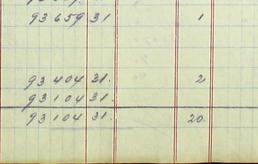 93 659 31 1
93 404 31. 2
93 104 31.
93 104 31. 20.